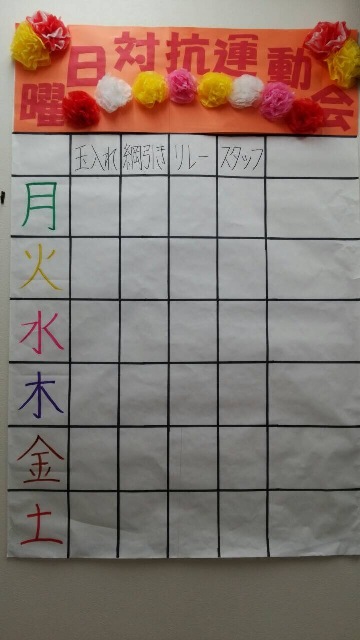 曜日対抗運動会
玉入れ 綱引き リレー スタッフ
月
火
水
木
金
土